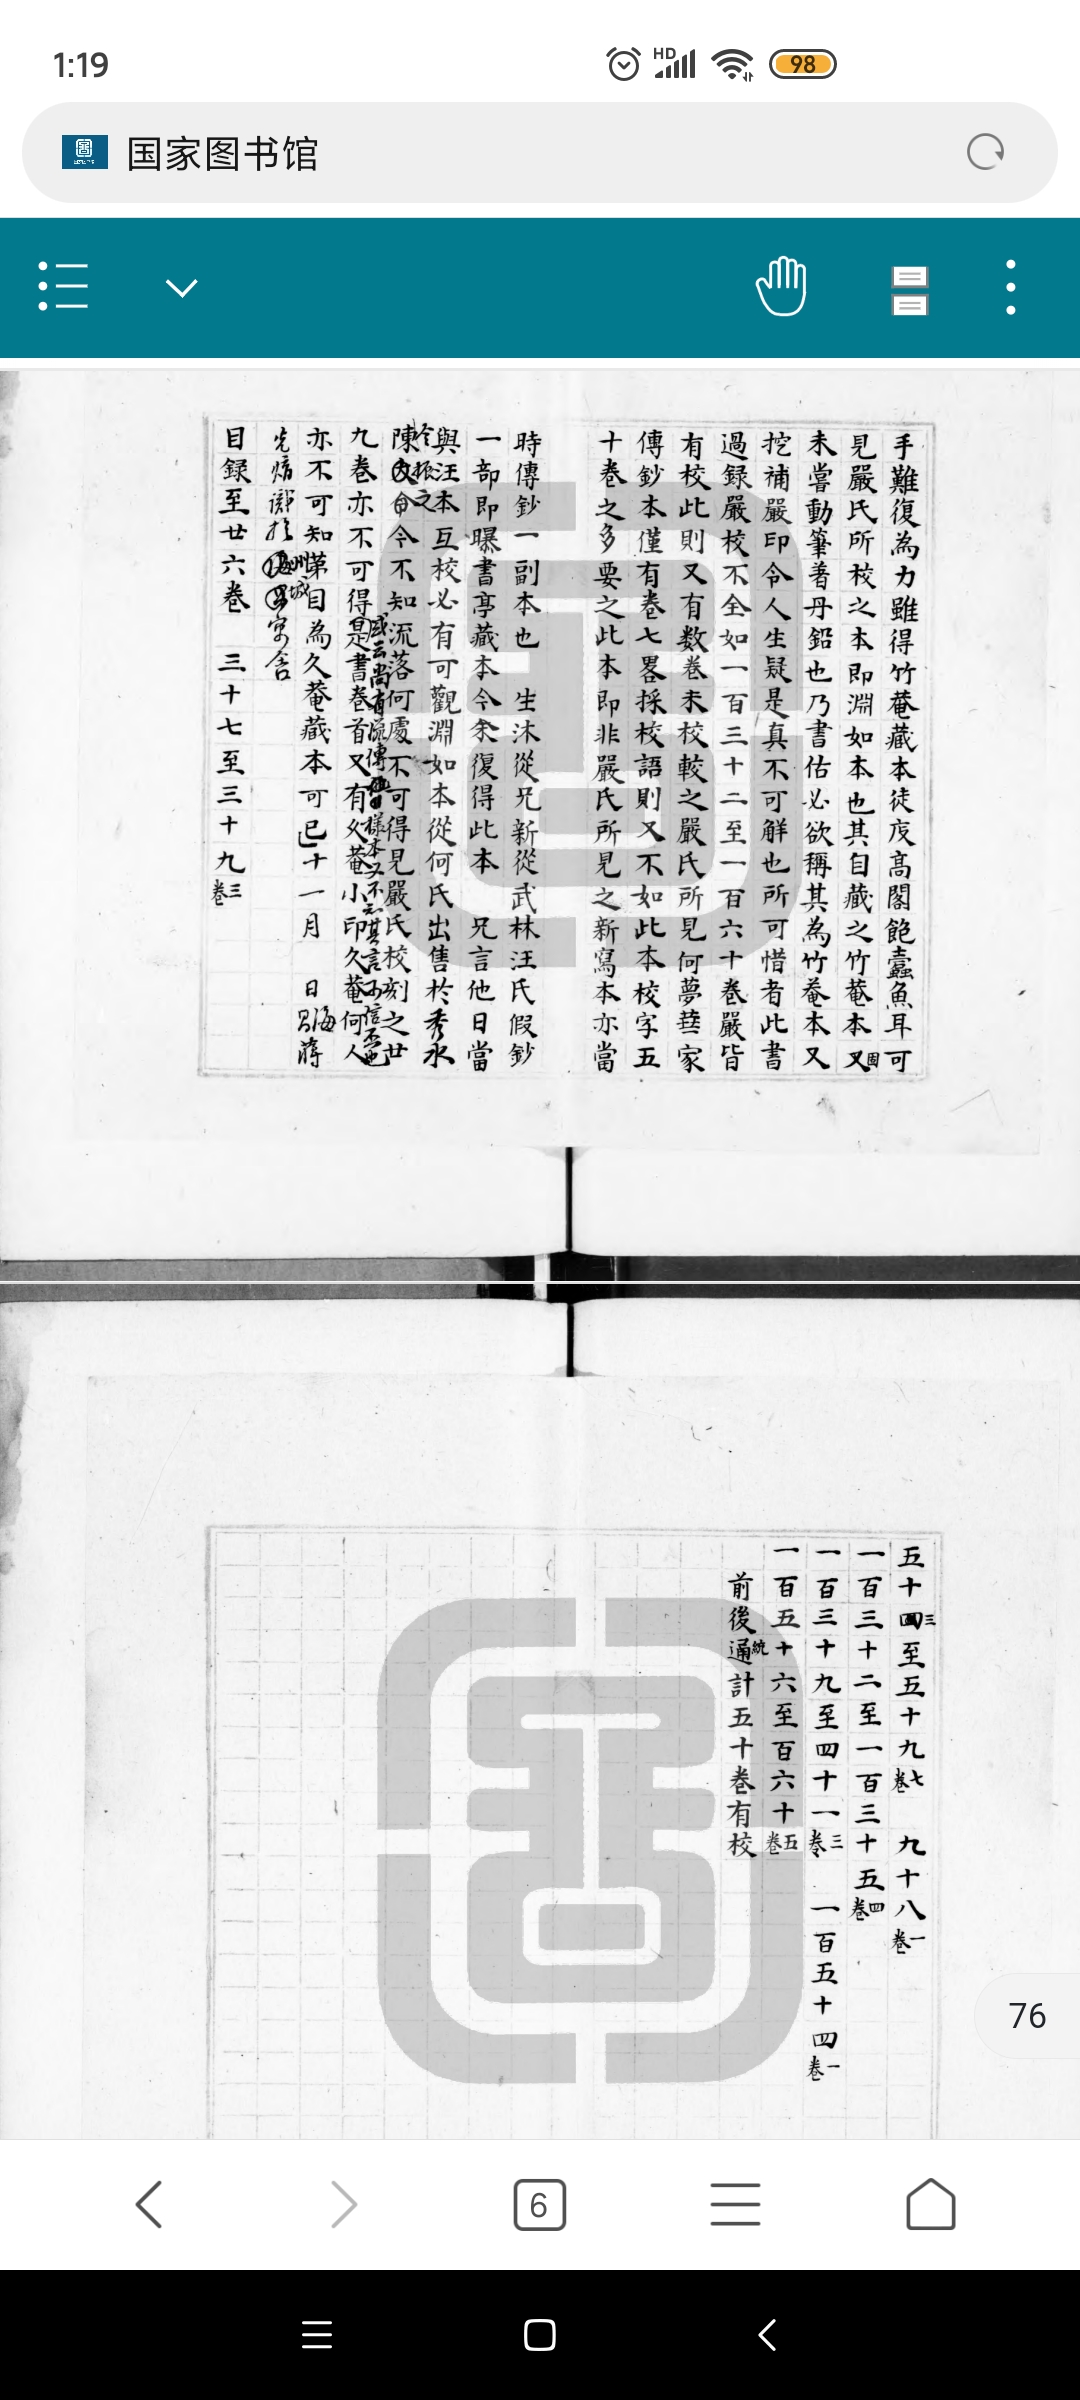 1:19
HD
98
国家图书馆
手難復為力雖得竹菴藏本徒庋高閣飽蠹魚耳可
見嚴氏所校之本即淵如本也其自藏之竹菴本又
固
未嘗動筆著丹鉛也乃書估必欲稱其為竹菴本又
挖補嚴印令人生疑是真不可解也所可惜者此書
過録嚴校不全如一百三十二至一百六十卷嚴皆
有校此則又有数卷未校較之嚴氏所見何夢華家
傳鈔本僅有卷七畧採校語則又不如此本校字五
十卷之多要之此本即非嚴氏所見之新寫本亦當
時傳鈔一副本也 生沐從兄新從武林汪氏假鈔
一部即曝書亭藏本今余復得此本 兄言他日當
與汪本互校必有可觀淵如本從何氏出售於秀水
陳 令不知流落何處不可得見嚴氏校刻之廿
九卷亦不可得是書卷首又有久菴小印久菴何人
亦不可知第目為久菴藏本可 已十一月 日海
昌蔣
光焴 寓舍
目録至廿六卷 三十七至三十九三卷
五十三至五十九七卷 九十八一卷
一百三十二至一百三十五四卷
一百三十九至四十一三卷 一百五十四一卷
一百五十六至百六十五卷
前後通計五十卷有校
統
76
6